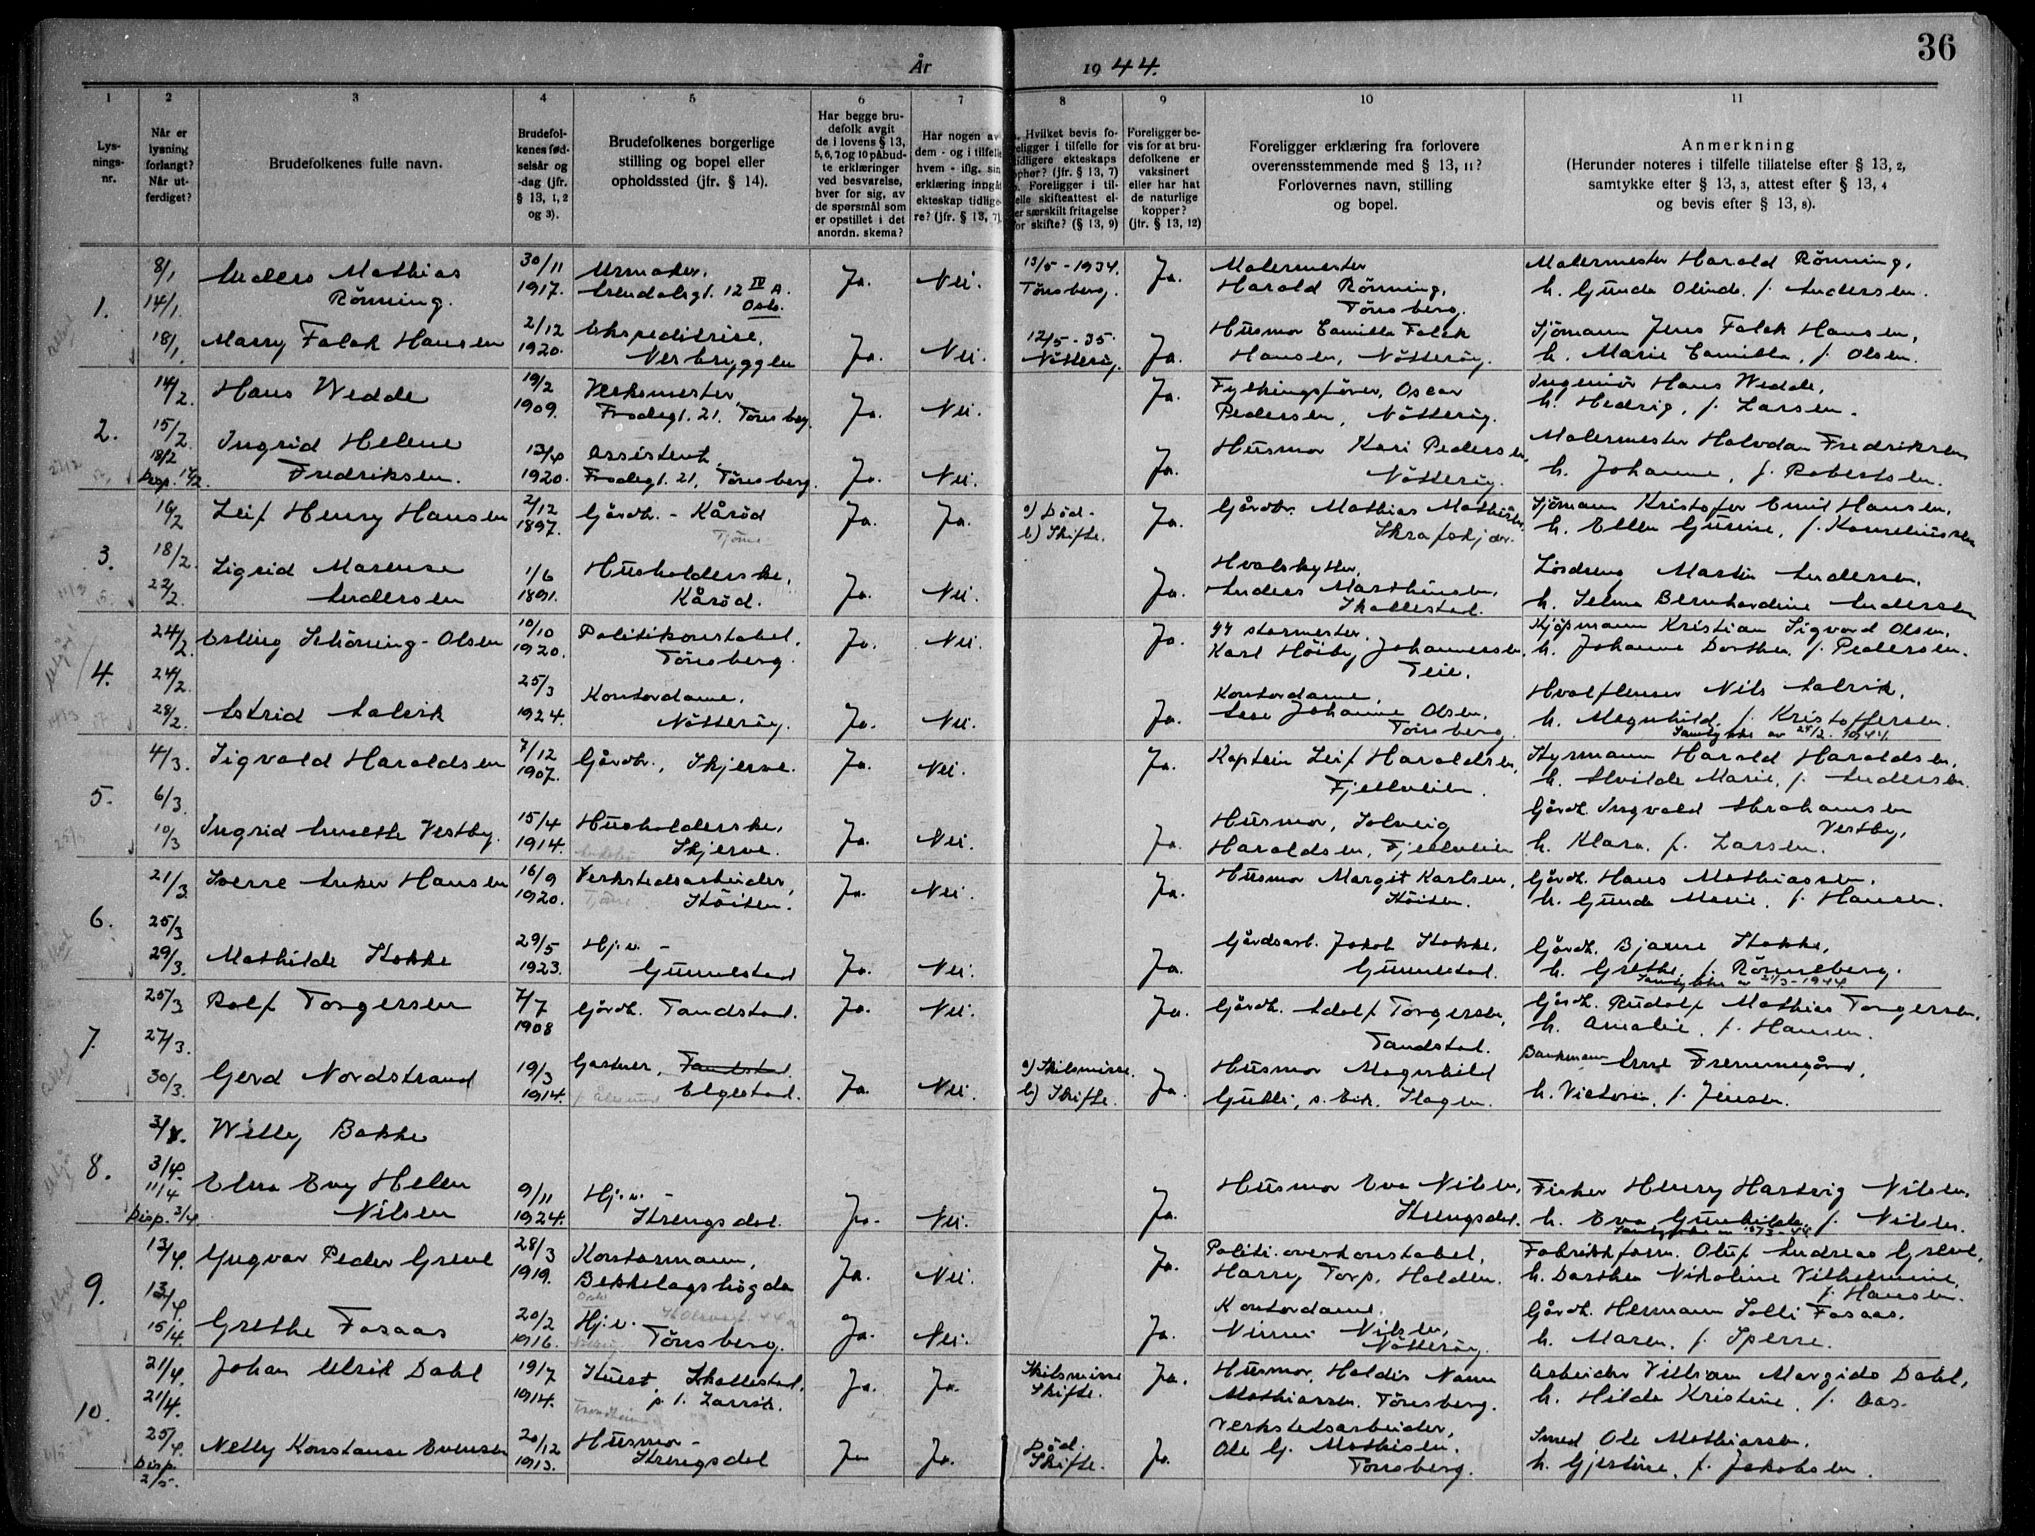 36
År 1944.
1 2 3 4 5 6 7 8 9 10 11
Lysnings-nr.
Når er lysning forlangt? Når utferdiget?
Brudefolkenes fulle navn.
Brudefolkenes fødselsår og -dag (jfr. § 13, 1, 2 og 3).
Brudefolkenes borgerlige stilling og bopel eller opholdssted (jfr. § 14).
Har begge brudefolk avgit de i lovens § 13, 5, 6, 7 og 10 påbudte erklæringer ved besvarelse, hver for sig, av de spørsmål som er opstillet i det anordn. skema?
Har nogen av dem - og i tilfelle hvem - iflg. sin erklæring inngått ekteskap tidligere? (jfr. § 13, 7).
Hvilket bevis foreligger i tilfelle for tidligere ekteskaps ophør? (jfr. § 13, 7) Foreligger i tilfelle skifteattest eller særskilt fritagelse for skifte? (§ 13, 9)
Foreligger bevis for at brudefolkene er vaksinert eller har hatt de naturlige kopper? (jfr. § 13, 12)
Foreligger erklæring fra forlovere overensstemmende med § 13, 11? Forlovernes navn, stilling og bopel.
Anmerkning (Herunder noteres i tilfelle tillatelse efter § 13, 2, samtykke efter § 13, 3, attest efter § 13, 4 og bevis efter § 13, 8).
1.
8/1 14/1. 18/1.
Anders Mathias Rönning.
30/11 1917.
Urmaker. Arendalsgt. 12 IV A. Oslo.
Ja. Nei.
13/5 - 1934. Tönsberg.
Ja.
Malermester Harald Rönning, Tönsberg.
Malermester Harald Rönning, h. Gunda Olinde f. Andersen.
Marry Falck Hansen
2/12 1920.
Ekspeditrise, Nesbryggen
Ja. Nei.
12/5 - 35. Nötteröy.
Ja.
Husmor Camilla Falck Hansen, Nötteröy.
Sjömann Jens Falck Hansen, h. Marie Camilla, f. Olsen.
2.
14/2. 15/2. 18/2 Disp. 17/2.
Hans Wedde
19/2 1909.
Verksmester, Frodegt. 21, Tönsberg.
Ja. Nei.
Ja.
Fylkingsförer, Oscar Pedersen, Nötteröy.
Ingeniör Hans Wedde, h. Hedvig, f. Larsen.
Ingrid Helene Fredriksen.
13/4 1920.
Assistent, Frodegt. 21, Tönsberg.
Ja. Nei.
Ja.
Husmor Kari Pedersen, Nötteröy.
Malermester Halvdan Fredriksen, h. Johanne, f. Robertsen.
3.
16/2 18/2. 22/2.
Leif Henry Hansen
2/12 1897.
Gårdbr. - Kåröd
Tjöme
Ja. Ja.
a) Död. b) Skifte.
Ja.
Gårdbr. Mathias Mathisen, Skrafskjær.
Sjömann Kristofer Emil Hansen, h. Ellen Gurine, f. Korneliussen
Sigrid Marense Andersen
1/6 1891.
Husholderske, Kåröd.
Ja. Nei.
Ja.
Hvalskytter, Anders Marthinsen, Skallestad.
Losdreng Martin Andersen, h. Selma Bernhardine Andersen
4.
24/2. 24/2. 28/2.
Erling Schöning-Olsen
10/10 1920.
Politikonstabel, Tönsberg.
Ja. Nei.
Ja.
Karl Höiby Johannessen, Teie.
Kjöpmann Kristian Sigvard Olsen, h. Johanne Dorthea f. Pedersen.
Astrid Salvik
25/3 1924.
Kontordame, Nötteröy.
Ja. Nei.
Ja.
Kontordame, Johanne Olsen, Tönsberg.
Hvalflenser Nils Salvik, h. Magnhild, f. Kristoffersen.
Samtykke av 24/2. 1944.
5.
4/3. 6/3. 10/3
Sigvald Haraldsen
7/12 1907.
Gårdbr., Skjerve.
Ja. Nei.
Ja.
Kaptein Leif Haraldsen, Fjellveien.
Styrmann Harald Haraldsen, h. Alvilde Marie, f. Andersen.
Ingrid Annette Vestby.
15/4 1914.
Husholderske, Skjerve.
Ja. Nei.
Ja.
Husmor, Solveig Haraldsen, Fjellveien
Gårdbr. Ingvald Abrahamsen Vestby, h. Klara, f. Larsen.
6.
21/3. 25/3 29/3.
Sverre Anker Hansen
16/9 1920.
Verkstedsarbeider, Köisen.
Ja. Nei.
Ja.
Husmor Margit Karlsen, Köisen.
Gårdbr. Hans Mathiassen, h. Gunda Marie, f. Hansen.
Mathilde Stokke
29/5 1923.
Hj.v. - Gunnestad
Ja. Nei.
Ja.
Gårdsarb. Jakob Stokke, Gunnestad.
Gårdbr. Bjarne Stokke, h. Grethe, f. Rönneberg.
Samtykke av 21/3 - 1944
7.
25/3 27/3. 30/3.
Rolf Torgersen
7/7 1908
Gårdbr. Tandstad.
Ja. Nei.
Ja.
Gårdbr. Adolf Torgersen, Tandstad.
Gårdbr. Rudolf Mathias Torgersen, h. Amalie, f. Hansen.
Gerd Nordstrand
19/3 1914.
Gartner, Tandstad. Elgestad.
Ja. Nei.
a) Skilsmisse. b) Skifte.
Ja.
Husmor Magnhild Gulli, s. Eik, Slagen.
Bankmann Arne Fremmegård, h. Victoria, f. Jensen.
8.
3/4. 3/4. 11/4 Disp. 3/4.
Willy Bakke
Elna Evy Helen Nilsen
9/11 1924.
Hj.v. - Strengsdal.
Ja. Nei.
Ja.
Husmor Eva Nilsen, Strengsdal.
Fisker Henry Hartvig Nilsen, h. Eva Gunhilda f. Nilsen.
9.
13/4. 13/4 15/4.
Yngvar Peder Greve
28/3 1919.
Kontormann, Bekkelagshögda
Oslo
Ja. Nei.
Ja.
Politi.overkonstabel, Harry Torp, Halden.
Fabrikkform. Oluf Andreas Greve, h. Dorthea Nikoline Vilhelmine, f. Hansen.
Grethe Fosaas
20/2 1916.
Hj.v. Tönsberg.
Ja. Nei.
Ja.
Kontordame. Ninni Nilsen, Nötteröy.
Gårdbr. Hermann Solli Fosaas. h. Maren, f. Sperre.
10.
21/4. 21/4. 25/4. Disp. 2/5.
Johan Ulrik Dahl
19/7 1914.
Stuert, Skallestad, p. t. Larvik.
Trondheim
Ja. Ja.
Skilsmisse Skifte.
Ja.
Husmor, Haldis Nann Mathiassen, Tönsberg.
Arbeider Villiam Margido Dahl, h. Hilda Kristine, f. Aas.
Nelly Konstanse Evensen
20/12 1913.
Husmor - Strengsdal
Ja Ja.
Död. Skifte.
Ja.
Verkstedsarbeider, Ole G. Mathisen, Tönsberg.
Smed Ole Mathiassen, h. Gjestine, f. Jakobsen.